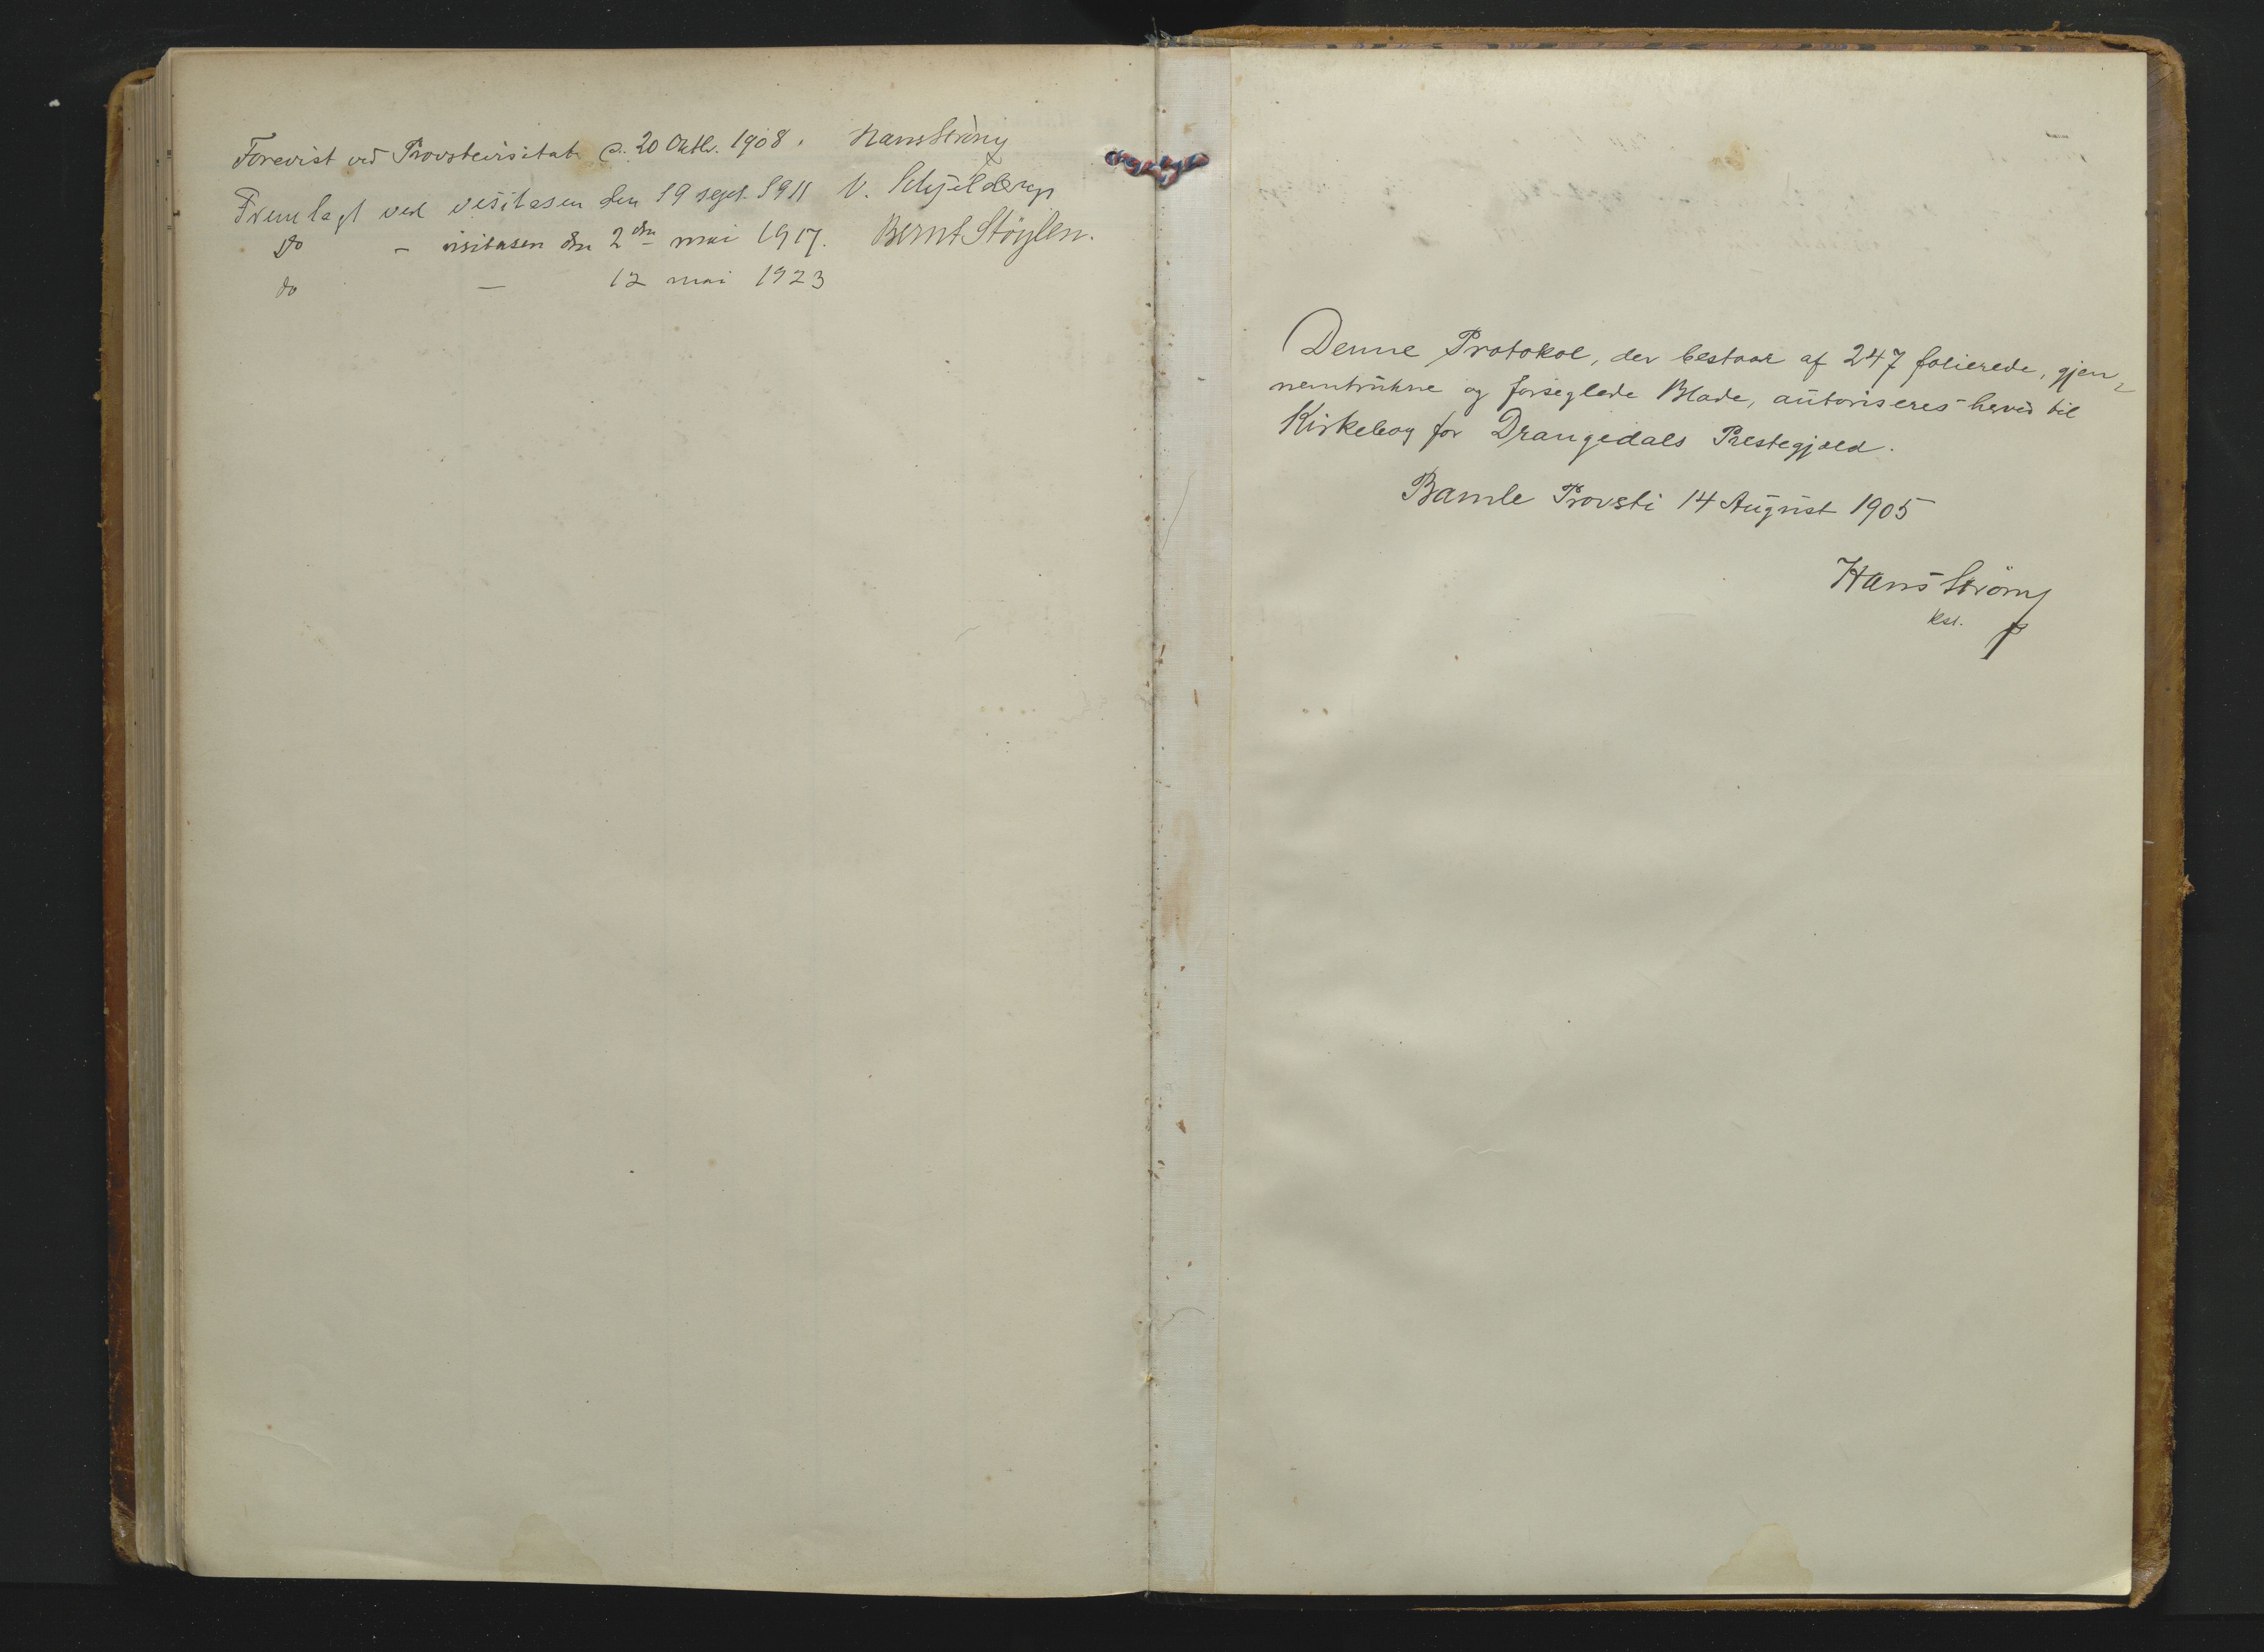 Forevist ved Provstevisitats d. 20 Oktbr. 1908. Hans Strøm
Fremlagt ved visitasen den 19 sept. 1911 V. Schjelderup
Do – visitasen den 2den mai 1917. Bernt Støylen.
do — 12 mai 1923
Denne Protokol, der bestaar af 247 folierede, gjen-
nemtrukne og forseglede Blade, autoriseres herved til
Kirkebog for Drangedals Prestegjæld.
Bamle Provsti 14 August 1905
Hans Strøm
kst.